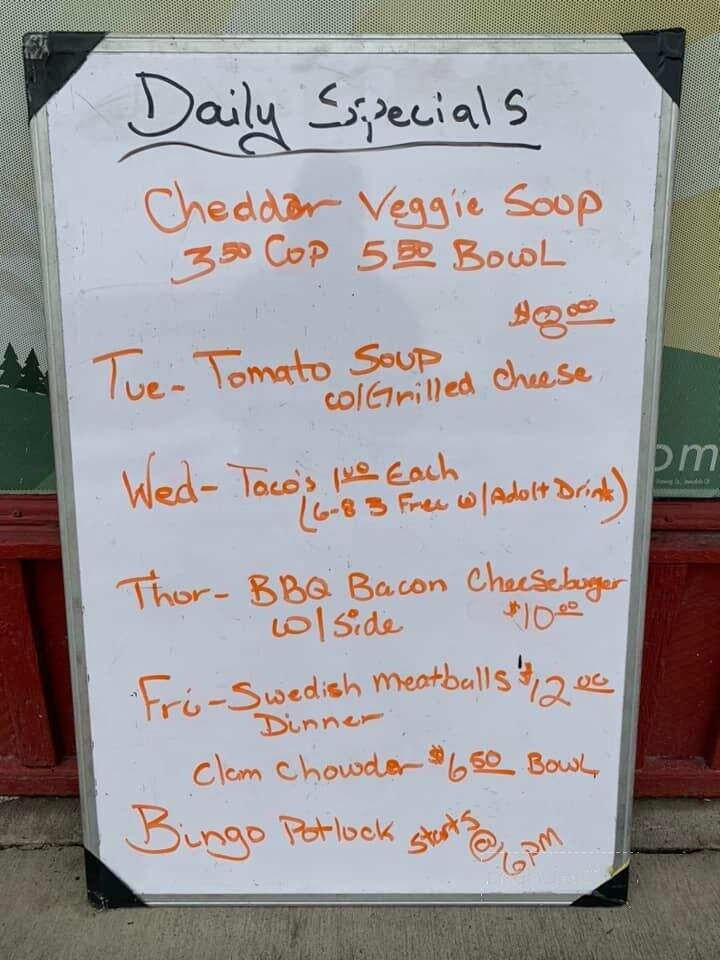 Daily Specials
Cheddar Veggie Soup
3.50 Cup 5.50 Bowl
$8.00
Tue- Tomato Soup
w/Grilled Cheese
Wed- Taco's 1.00 Each
(6-8 3 Free w/Adult Drink)
Thur- BBQ Bacon Cheeseburger
w/Side $10.00
Fri- Swedish Meatballs $12.00
Dinner
Clam Chowder $6.50 Bowl
Bingo Potluck starts @ 6pm
om